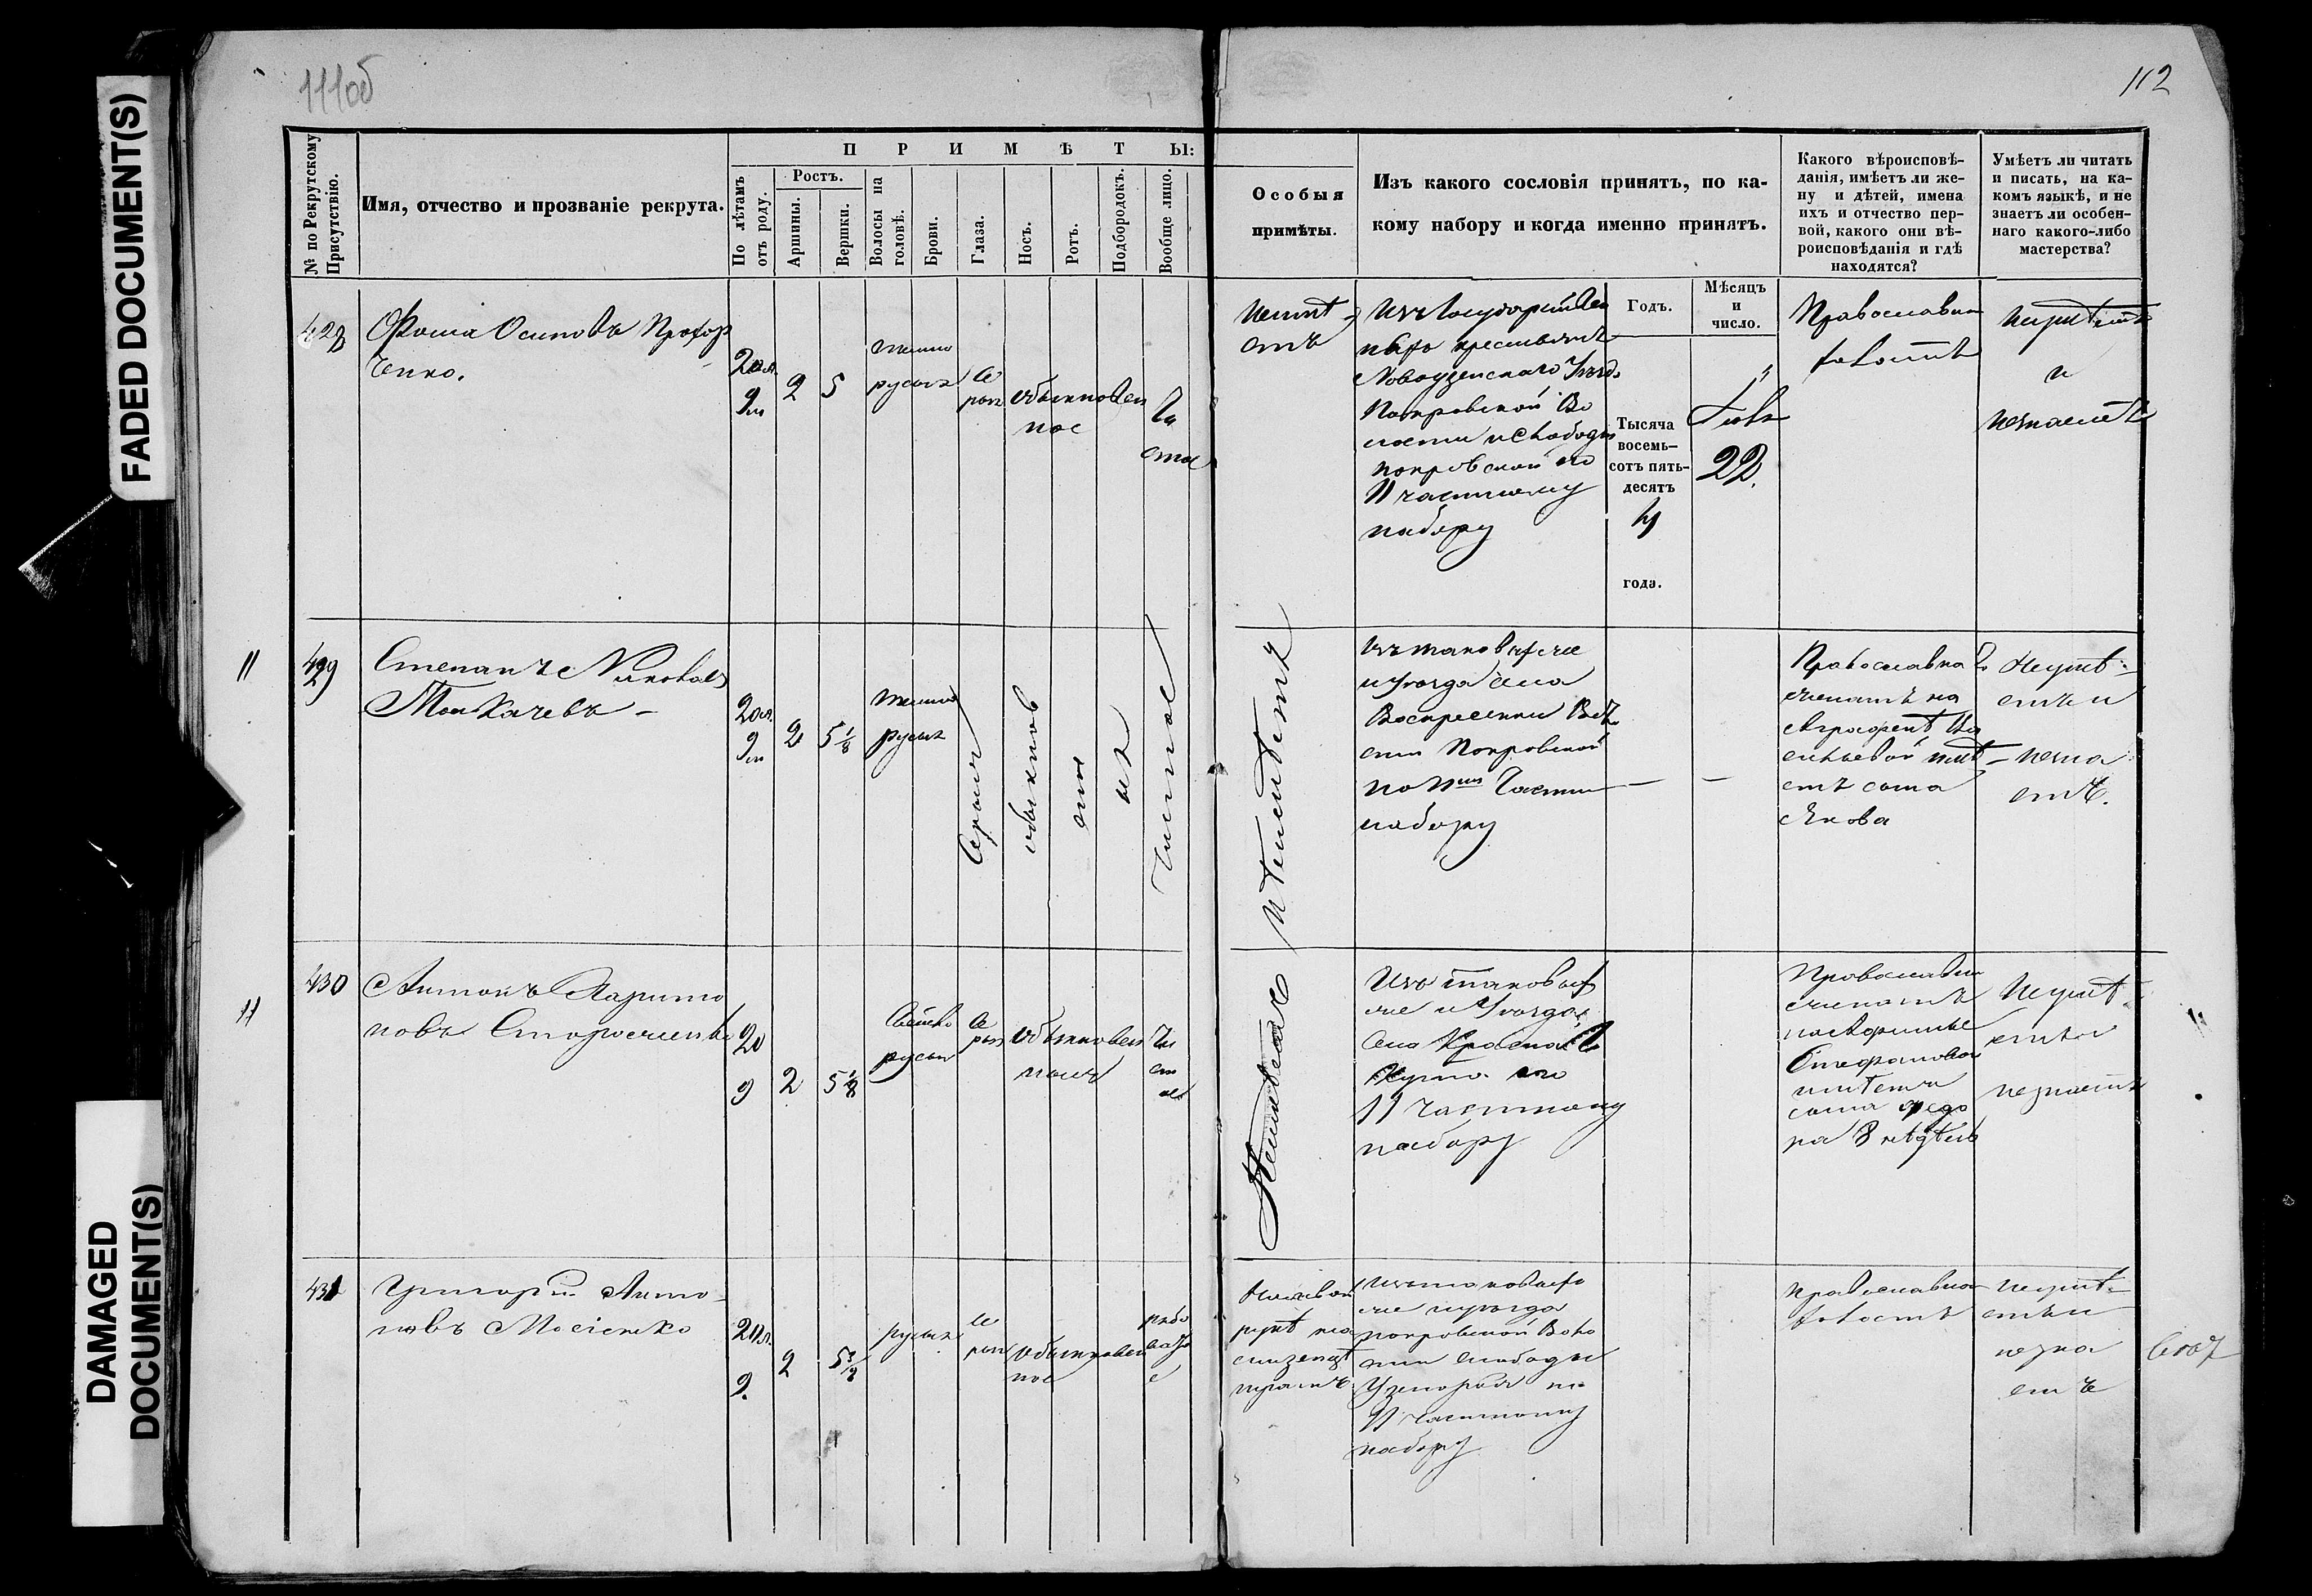 FADED DOCUMENT(S)
DAMAGED
DOCUMENT(S)
111об
112
№ по Рекрутскому
Присутствію.
Имя, отчество и прозваніе рекрута.
ПРИМѢТЫ:
По лѣтамъ
отъ роду.
Ростъ.
Аршины.
Вершки.
Волосы на
головѣ.
Брови.
Глаза.
Носъ.
Ротъ.
Подбородокъ.
Вообще лицо.
Особыя
примѣты.
Изъ какого сословія принятъ, по ка-
кому набору и когда именно принятъ.
Какого вѣроисповѣ-
данія, имѣетъ ли же-
ну и дѣтей, имена
ихъ и отчество пер-
вой, какого они вѣ-
роисповѣданія и гдѣ
находятся?
Умѣетъ ли читать
и писать, на ка-
комъ языкѣ, и не
знаетъ ли особен-
наго какого-либо
мастерства?
Годъ.
Мѣсяцъ
и
число.
428
Фома Осиповъ Прохор
ченко.
20 л.
9 м
2
5
темно
русые
се
рые
обыкновен
ное
чи
стое
неимѣ
етъ
Изъ Государствен
ныхъ крестьянъ
Новоузенскаго Уѣзд.
Покровской Во
лости и Слободы
покровской по
11 частному
набору
Тысяча
восемь-
сотъ пять-
десятъ
4
года.
22.
Православна
холостъ
неумѣетъ
и
незнаетъ
11
429
Степанъ Яковлев
Толкачевъ
20 л.
9 м
2
5 1/8
темно
русые
Серые
обыкнов
ен
ые
Чистое
неимѣетъ
Изъ таковыхъ же
и уѣзда села
Воскресенки Вол
сти Покровской
по 11му Частн
набору
Православна
женатъ на
Евграфенѣ Ва
сильевой имѣ
етъ сына
Якова
Неумѣ-
етъ и
незна
етъ.
11
430
Антонъ Харито
новъ Стороженко
20
9
2
5 1/8
Светло
русые
се
рые
обыкновен
ные
чи
ст
ое
Неимѣетъ
Изъ таковыхъ
же и Уѣзда
села Краснаго
Кута по
11 частному
набору
Православна
женатъ
Стефановой
имѣетъ
сына Федо
ра 8 недѣль
Неумѣ-
етъ и
незнаетъ
431
Григорій Анто-
новъ Мосіенко
20 л.
9.
2
5 3/8
русые
се
рые
обыкновен
ное
рябо
ватое
Изъ таковыхъ
же и уѣзда
покровской Воло
сти слободы
Узморья по
11 частному
набору
православна
холостъ
неумѣ-
етъ и
незна
етъ